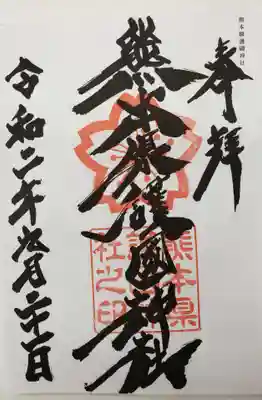 熊本縣護國神社
奉拝
熊本県護國神社
熊本県
護國神
社之印
令和二年九月二十一日